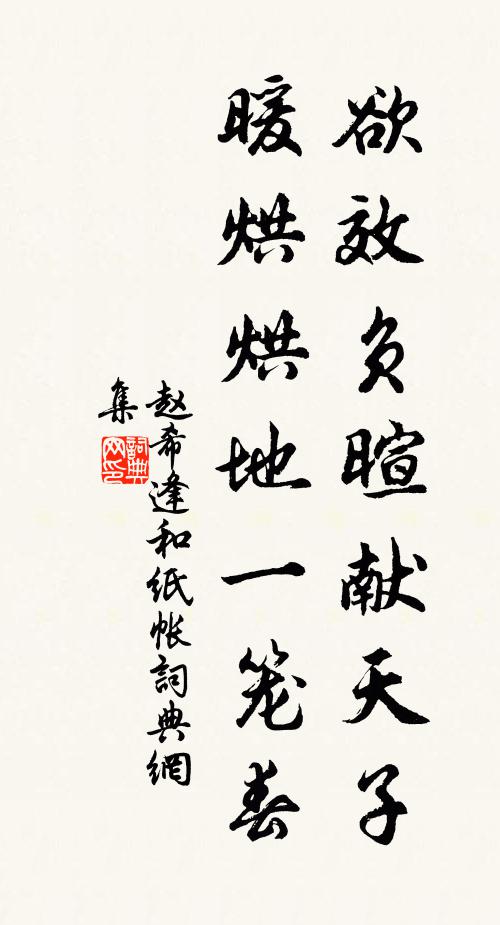 欲效负暄献天子
暖烘烘地一笼春
赵希逢和纸帐詞典網
集
詞典
网印